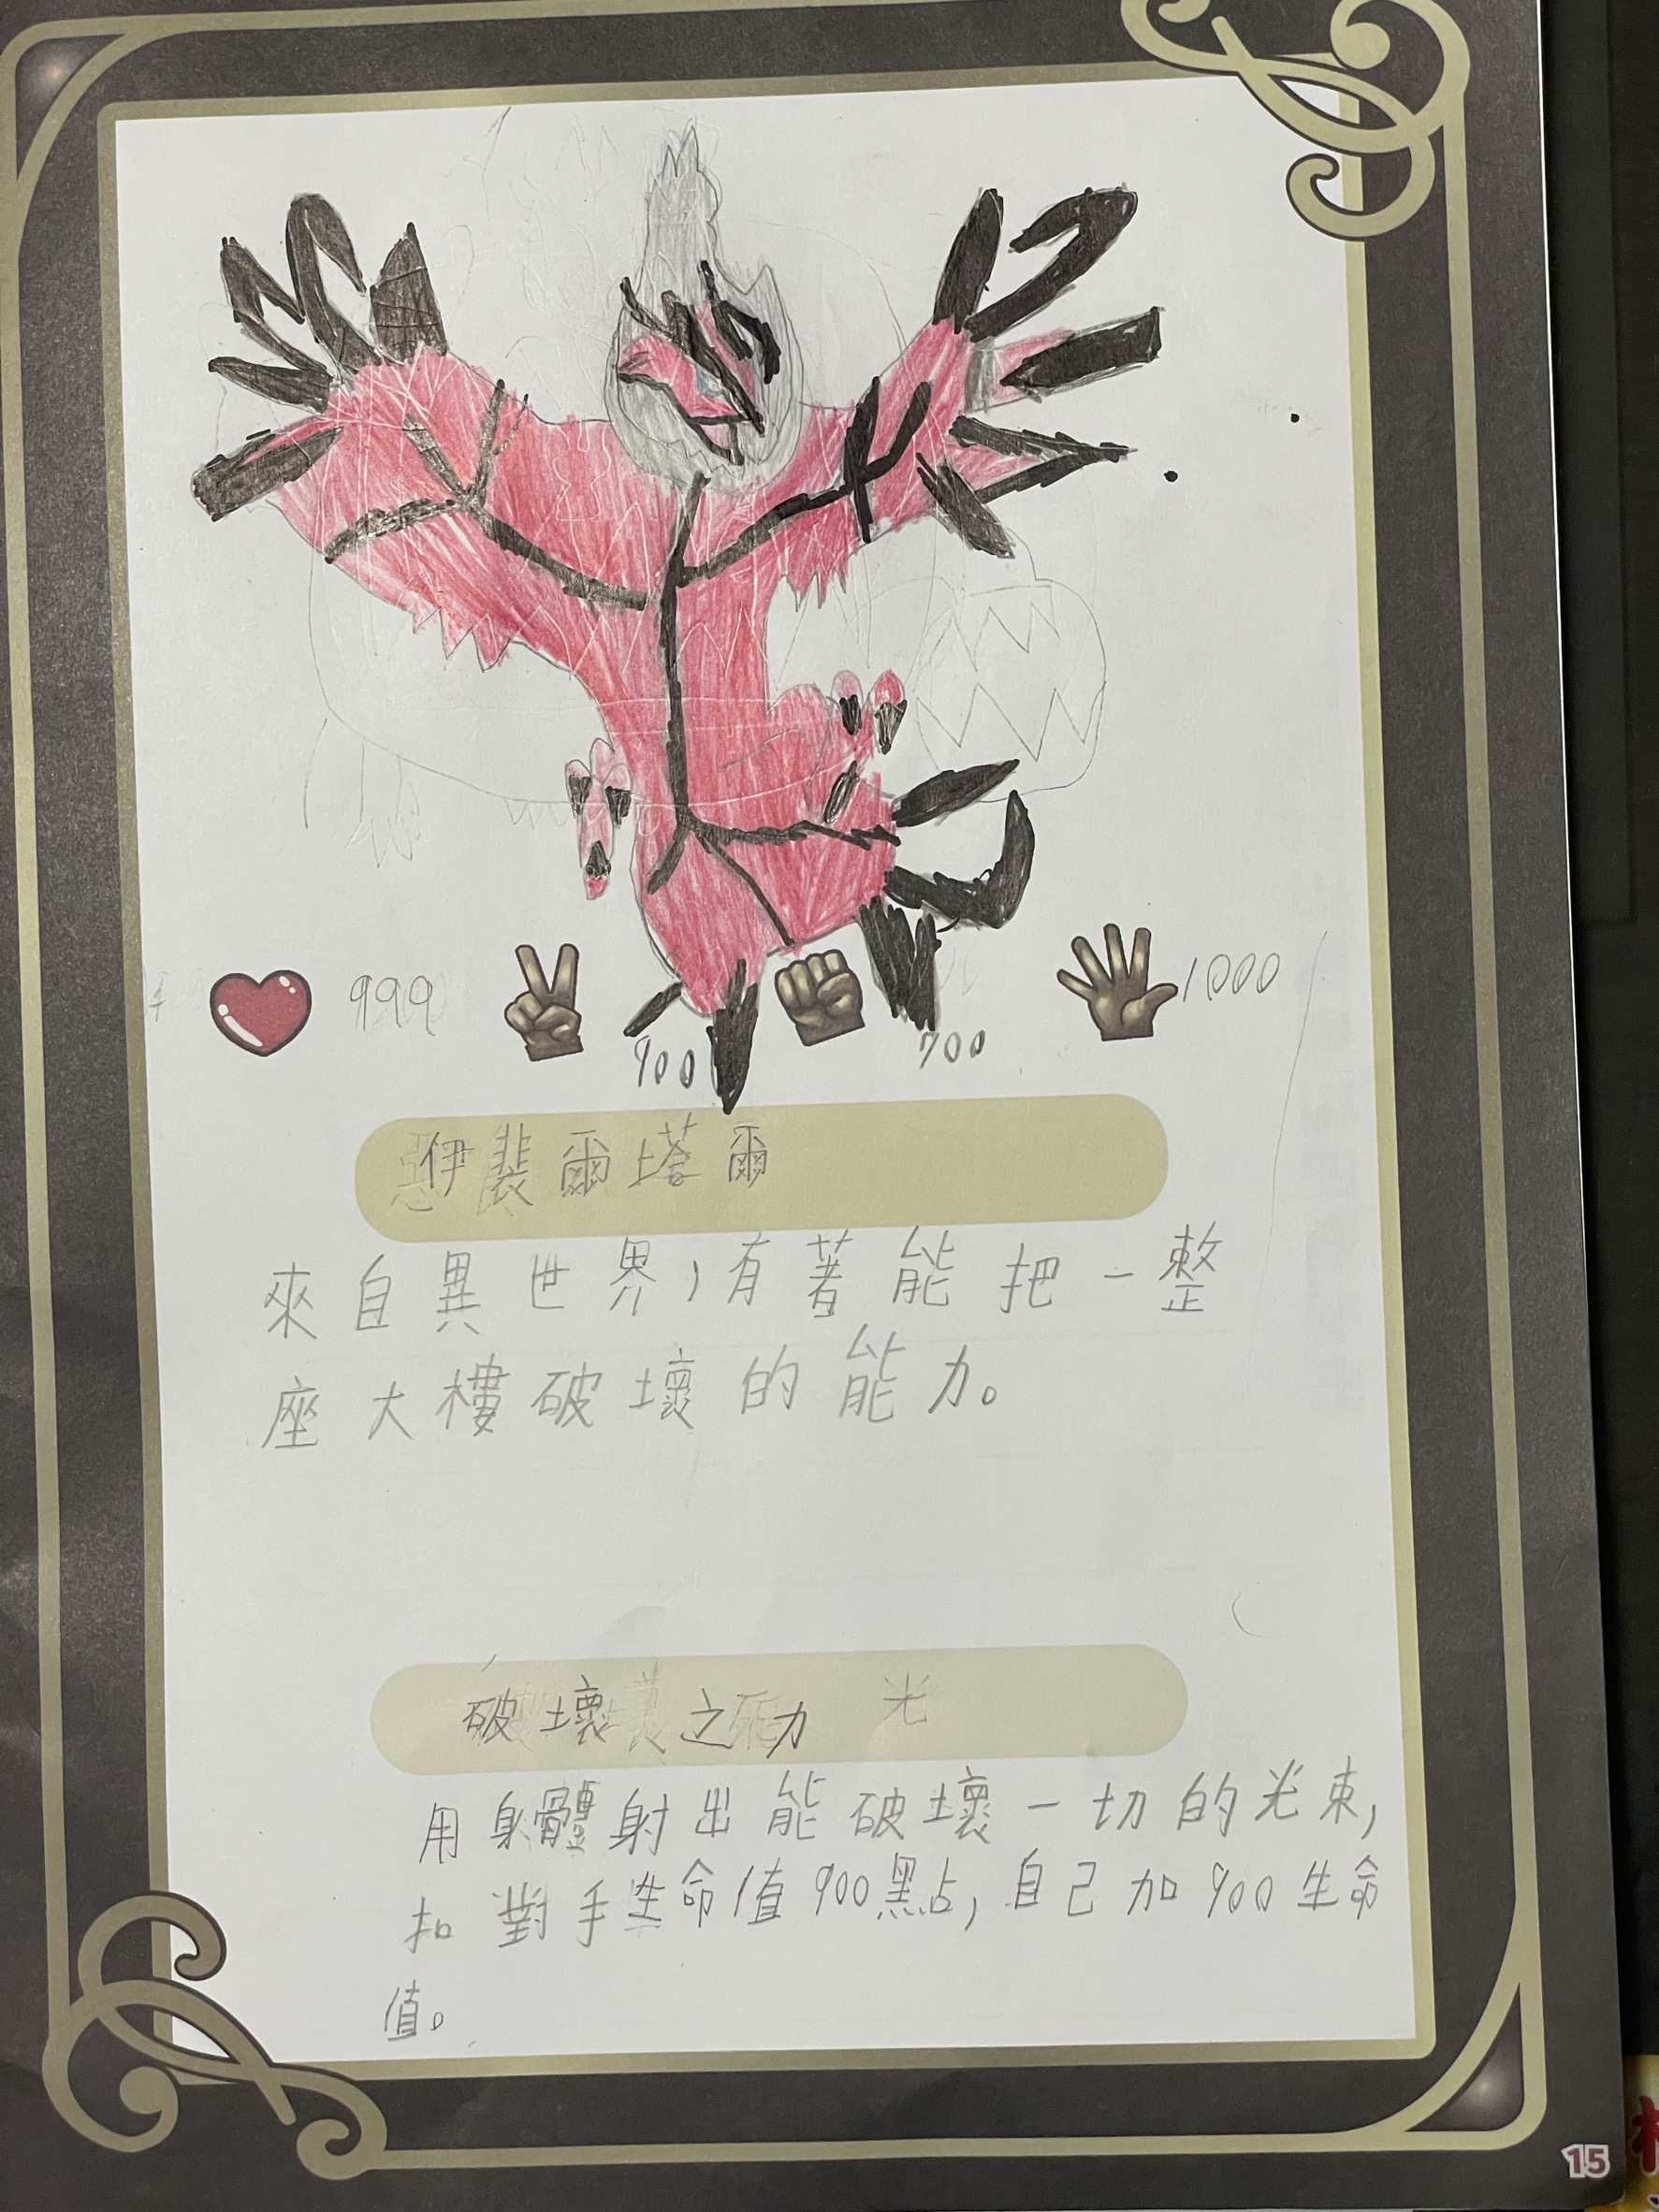 999 900 700 1000
伊裴爾塔爾
來自異世界,有著能把一整
座大樓破壞的能力。
破壞之力 光
用身體射出能破壞一切的光束,
扣對手生命值900點,自己加900生命
值。
15